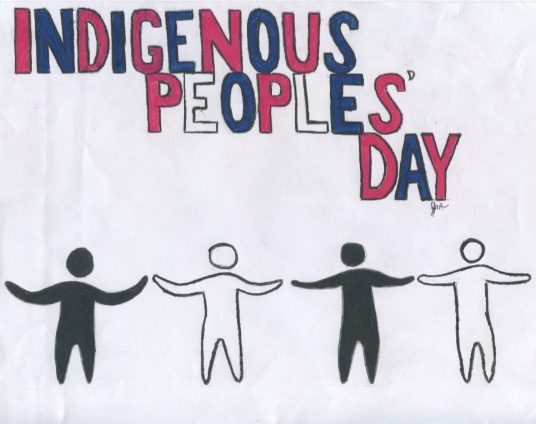 INDIGENOUS
PEOPLES'
DAY